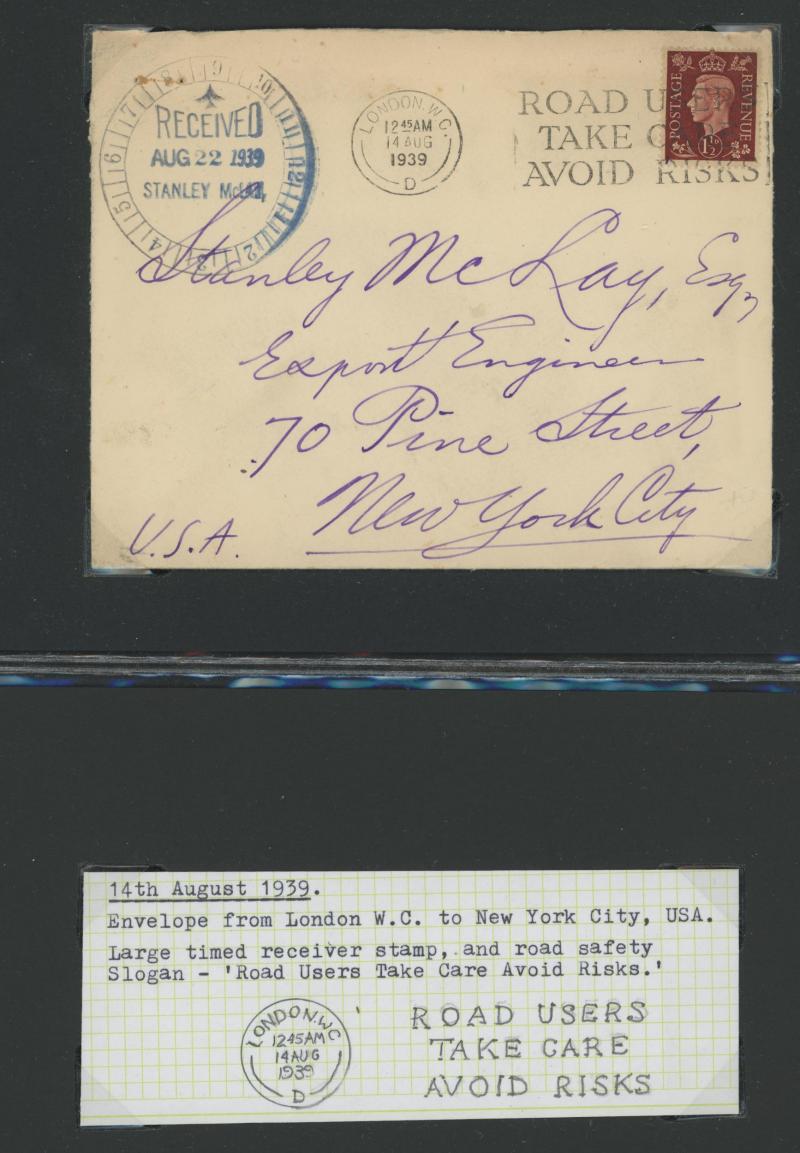 RECEIVED
AUG 22 1939
STANLEY McLAY,
6 7 8 9 10 11 12 1 2 3 4 5
LONDON. W.C.
12 45 AM
14 AUG
1939
D
ROAD USERS
TAKE CARE
AVOID RISKS
POSTAGE REVENUE
1½
Stanley McLay, Esq,
Export Engineer
70 Pine Street,
New York City
U.S.A.
14th August 1939.
Envelope from London W.C. to New York City, USA.
Large timed receiver stamp, and road safety
Slogan - 'Road Users Take Care Avoid Risks.'
LONDON.W.C
12 45 AM
14 AUG
1939
D
ROAD USERS
TAKE CARE
AVOID RISKS